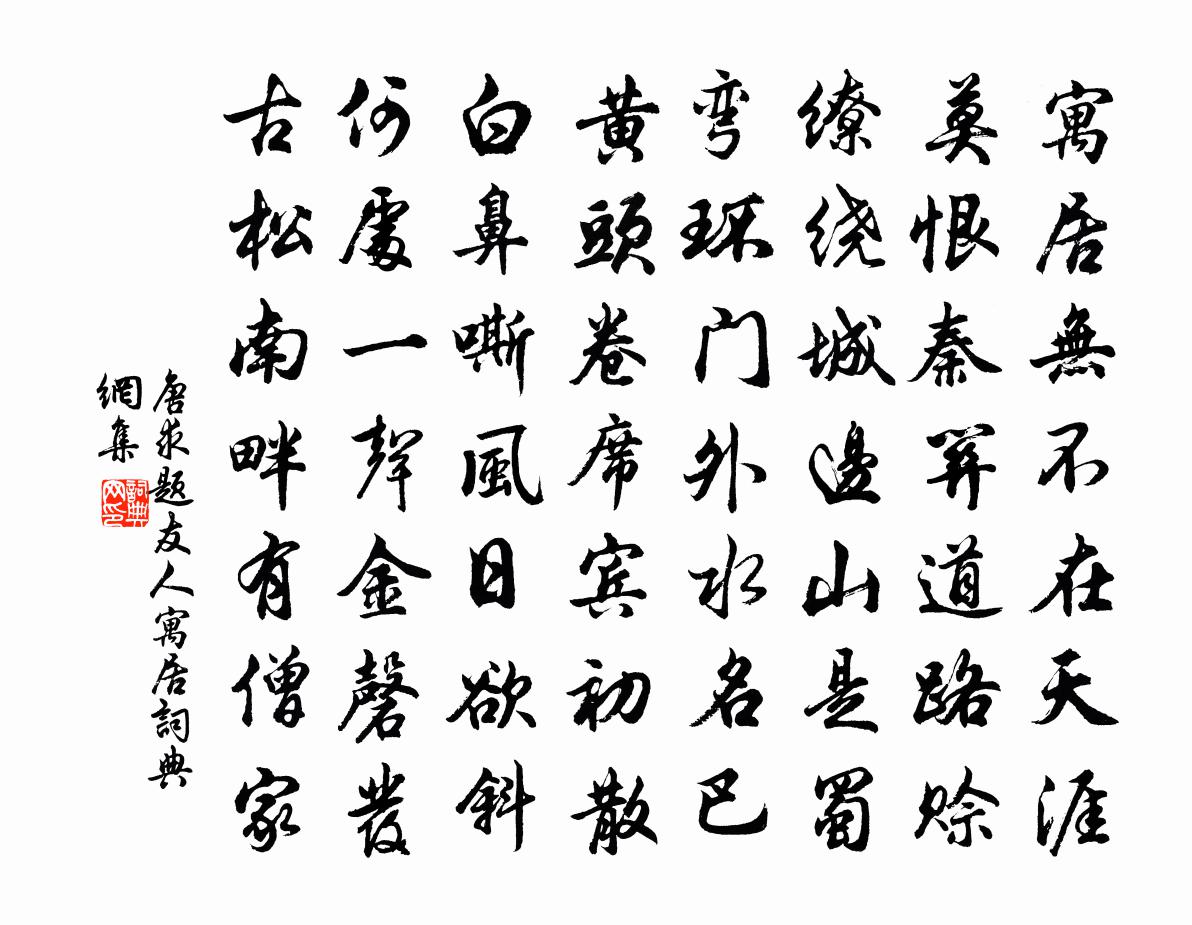 寓居無不在天涯
莫恨秦關道路賒
繚绕城邊山是蜀
弯环门外水名巴
黄頭卷席宾初散
白鼻嘶風日欲斜
何處一聲金磬發
古松南畔有僧家
唐求题友人寓居詞典
網集
詞典
网印